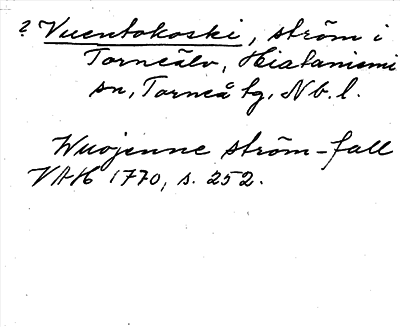 ? Vuentokoski, ström i
Torneälv, Hietaniemi
sn, Torneå tg, Nb. l.
Wuojenne ström-fall
VAH 1770, s. 252.